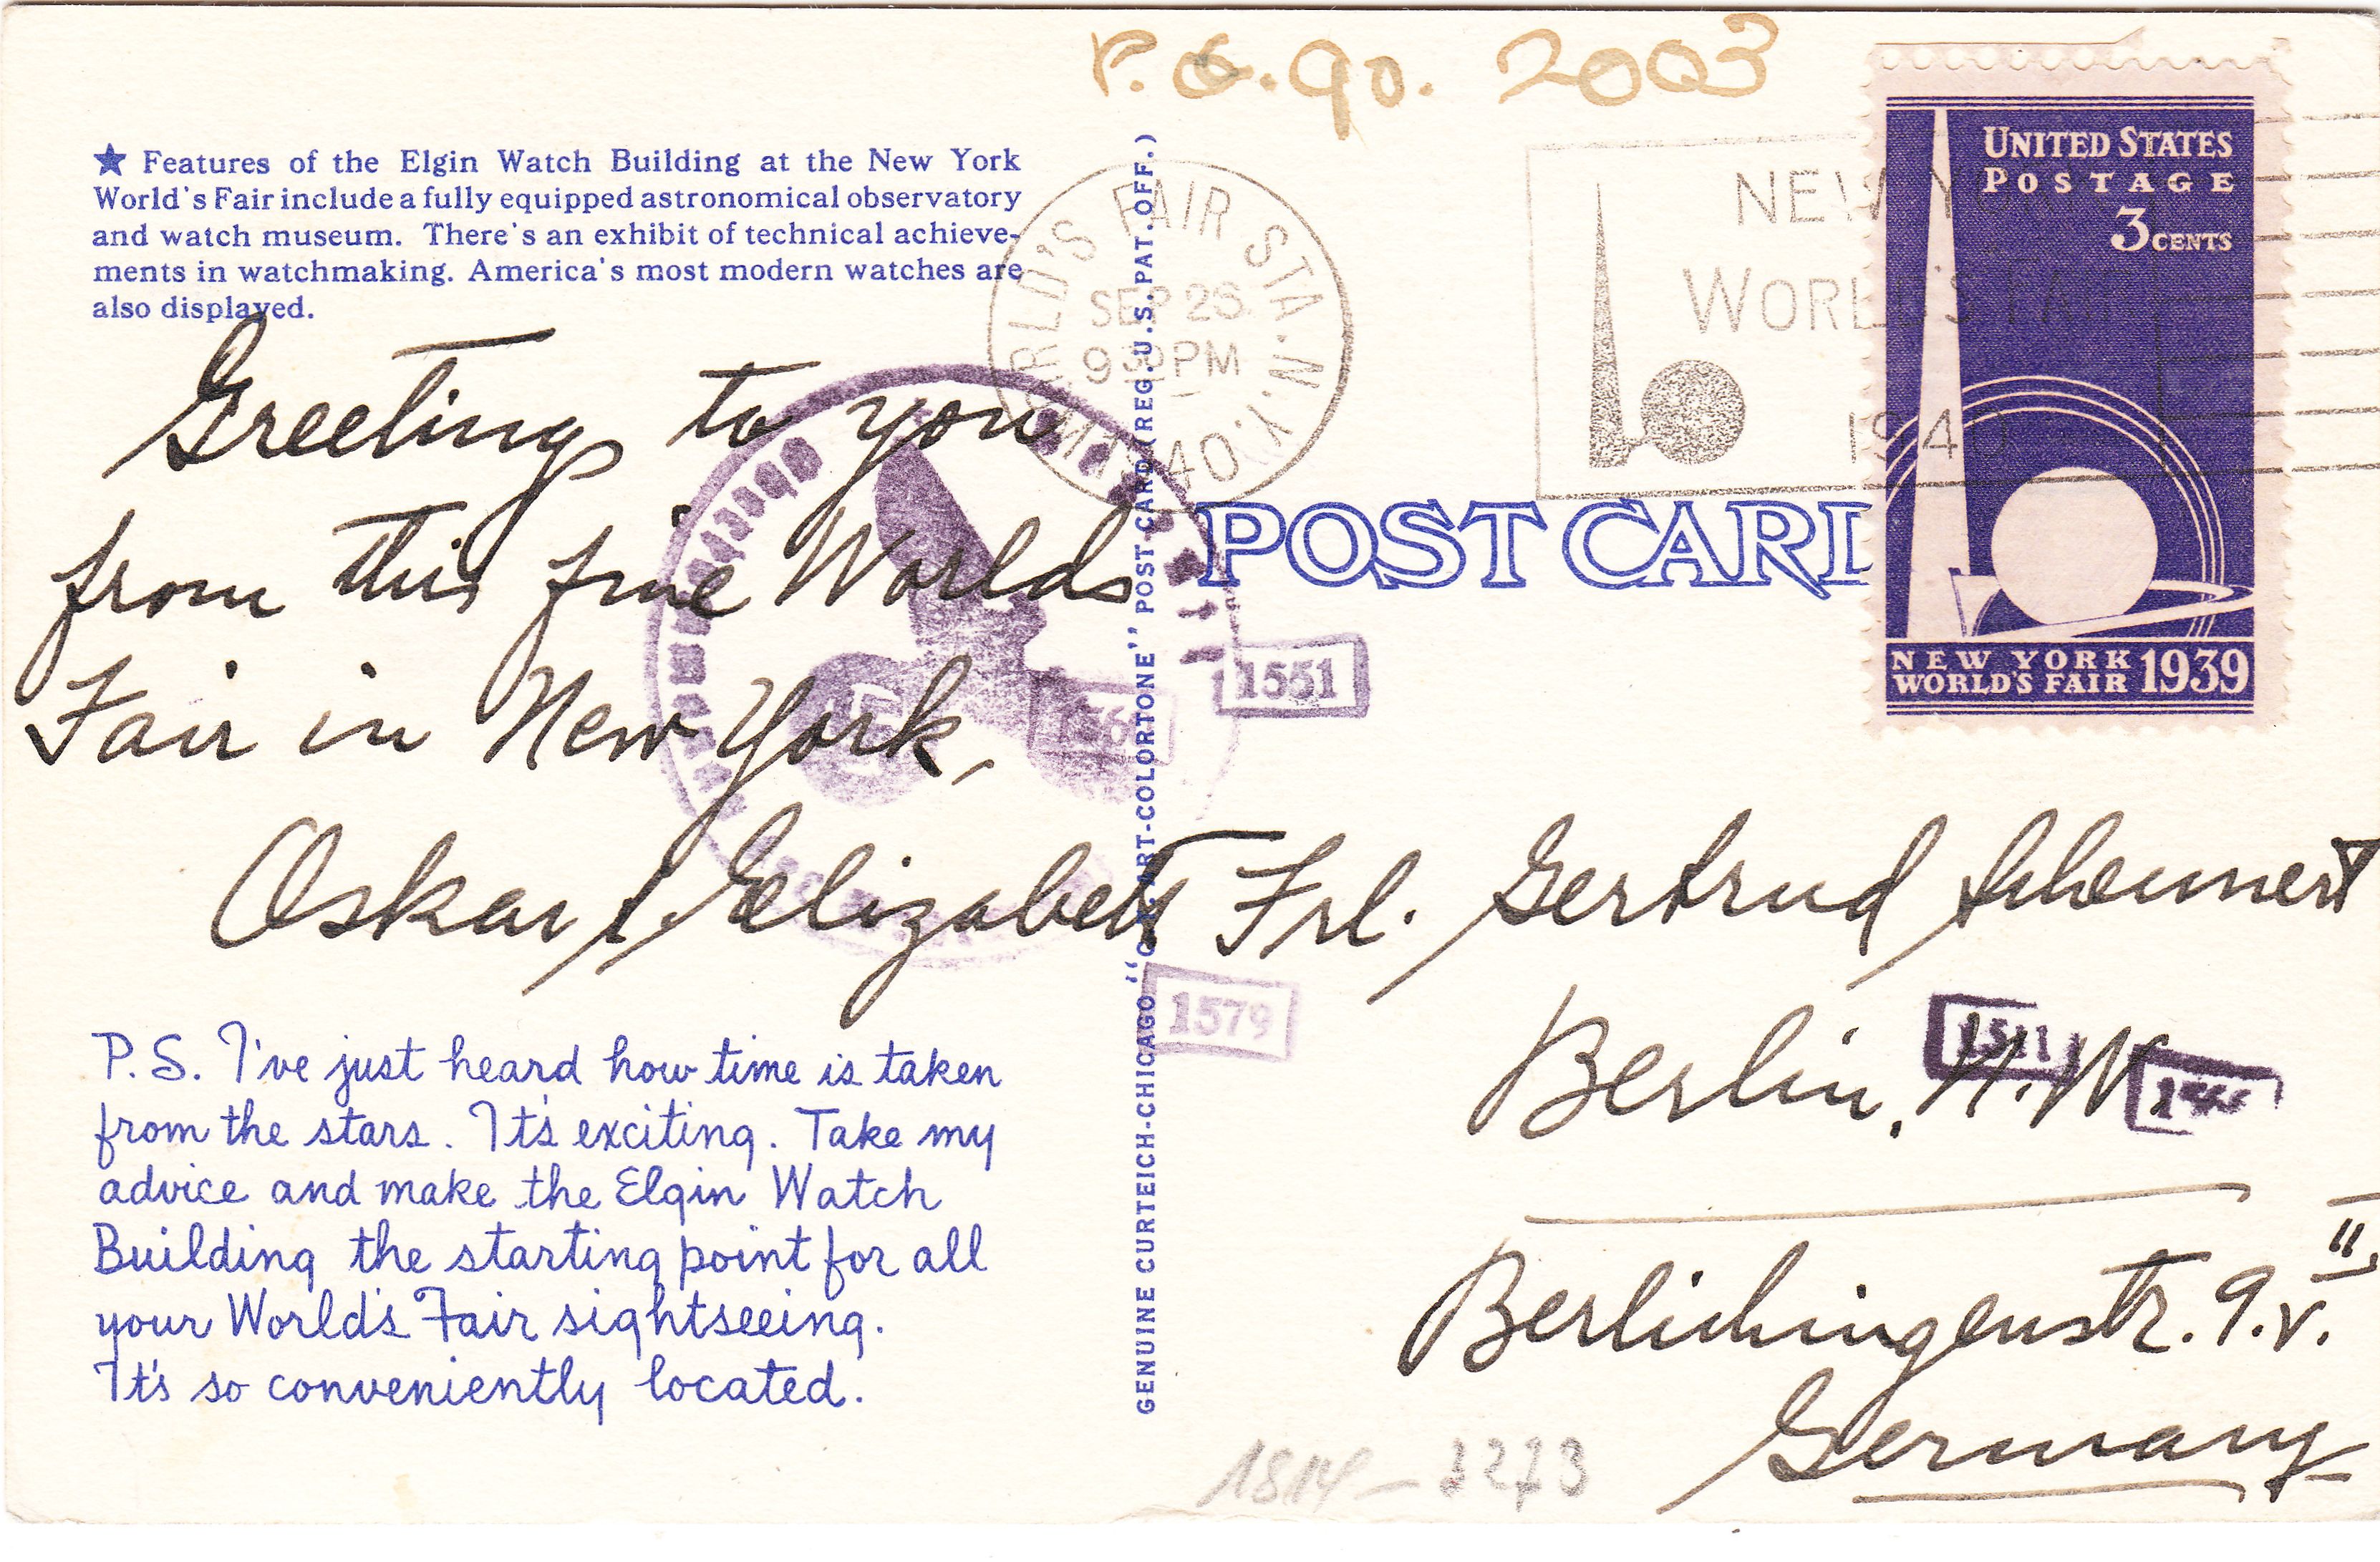 P.O.90. 2003
★ Features of the Elgin Watch Building at the New York
World's Fair include a fully equipped astronomical observatory
and watch museum. There's an exhibit of technical achieve-
ments in watchmaking. America's most modern watches are
also displayed.
Greetings to you
from this fine Worlds
Fair in New York,
Oskar & Elizabeth
P.S. I've just heard how time is taken
from the stars. It's exciting. Take my
advice and make the Elgin Watch
Building the starting point for all
your World's Fair sightseeing.
It's so conveniently located.
GENUINE CURTEICH-CHICAGO "C.T. ART-COLORTONE" POST CARD (REG. U.S. PAT. OFF.)
WORLD'S FAIR STA. N.Y.
SEP 26
9 30 PM
1940
NEW YORK
WORLD'S FAIR
1940
UNITED STATES
POSTAGE
3 CENTS
NEW YORK
WORLD'S FAIR 1939
POST CARD
1551
1579
1511
Frl. Gertrud
Berlin, N.W.
Berlichingenstr. 9. v. II
Germany